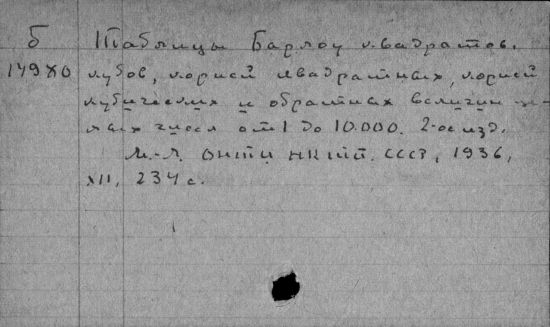 Б Таблицы Барлоу квадратов,
14980 кубов, корней квадратных, корней
кубических и обратных величин це-
лых чисел от 1 до 10.000. 2-ое изд.
М.-Л. ОНТИ НКТП. СССР, 1936,
XII, 234 с.